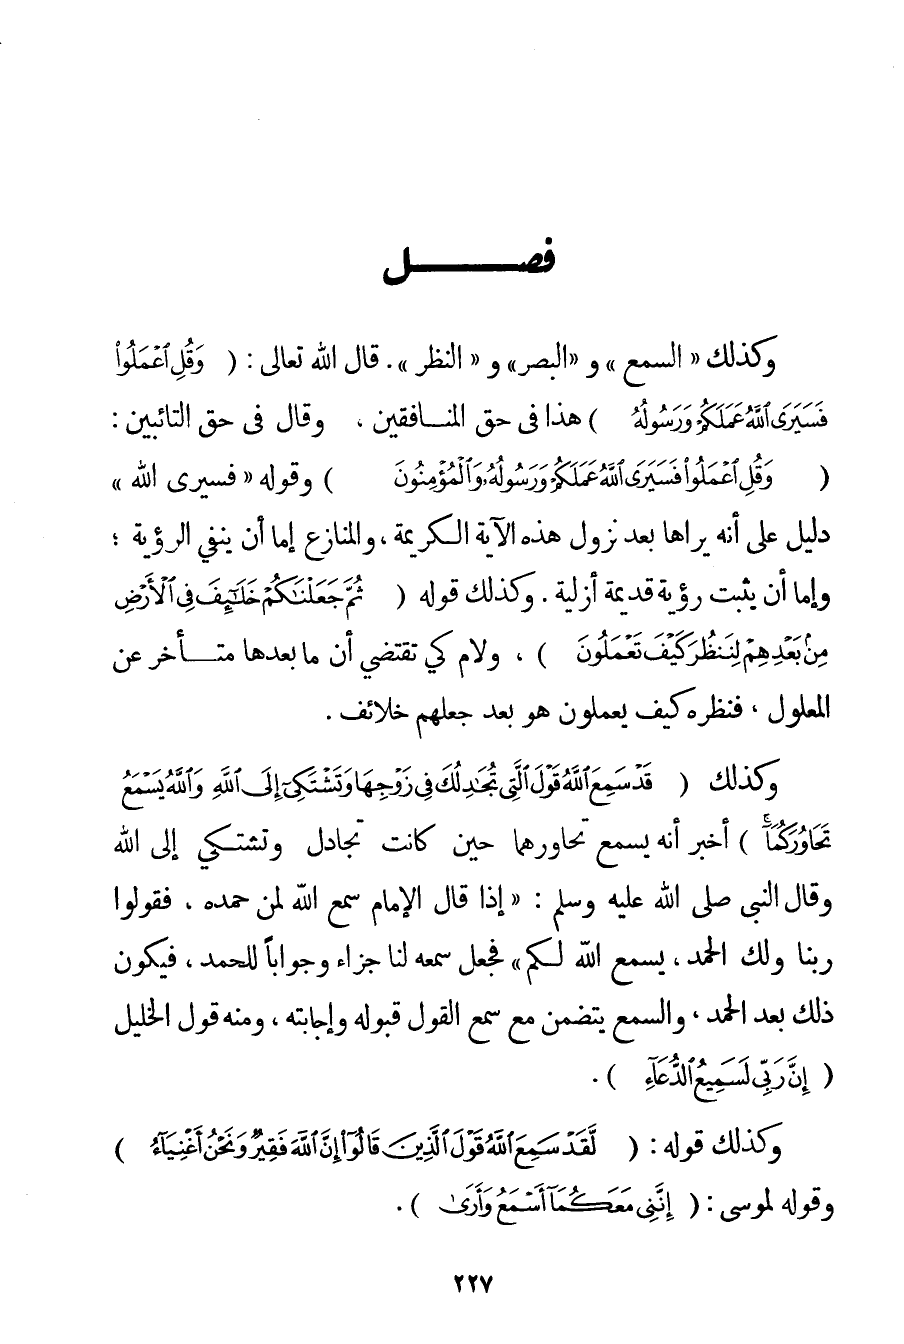 فصـــــــل
وكذلك « السمع » و «البصر» و « النظر ». قال الله تعالى : ( وَقُلِ ٱعْمَلُوا۟
فَسَيَرَى ٱللَّهُ عَمَلَكُمْ وَرَسُولُهُ ) هذا فى حق المنـافقين ، وقال فى حق التائبين :
( وَقُلِ ٱعْمَلُوا۟ فَسَيَرَى ٱللَّهُ عَمَلَكُمْ وَرَسُولُهُۥ وَٱلْمُؤْمِنُونَ ) وقوله « فسيرى الله »
دليل على أنه يراها بعد نزول هذه الآية الـكريمة ، والمنازع إما أن ينفي الرؤية ؛
وإما أن يثبت رؤية قديمة أزلية . وكذلك قوله ( ثُمَّ جَعَلْنَٰكُمْ خَلَٰٓئِفَ فِى ٱلْأَرْضِ
مِنۢ بَعْدِهِمْ لِنَنظُرَ كَيْفَ تَعْمَلُونَ ) ، ولام كي تقتضي أن ما بعدها متـــأخر عن
المعلول ، فنظره كيف يعملون هو بعد جعلهم خلائف .
وكذلك ( قَدْ سَمِعَ ٱللَّهُ قَوْلَ ٱلَّتِى تُجَٰدِلُكَ فِى زَوْجِهَا وَتَشْتَكِىٓ إِلَى ٱللَّهِ وَٱللَّهُ يَسْمَعُ
تَحَاوُرَكُمَآ ۚ ) أخبر أنه يسمع تحاورهما حين كانت تجادل وتشتـكي إلى الله
وقال النبى صلى الله عليه وسلم : « إذا قال الإمام سمع الله لمن حمده ، فقولوا
ربنا ولك الحمد ، يسمع الله لـكم » فجعل سمعه لنا جزاء وجواباً للحمد ، فيكون
ذلك بعد الحمد ، والسمع يتضمن مع سمع القول قبوله وإجابته ، ومنه قول الخليل
( إِنَّ رَبِّى لَسَمِيعُ ٱلدُّعَآءِ ) .
وكذلك قوله : ( لَّقَدْ سَمِعَ ٱللَّهُ قَوْلَ ٱلَّذِينَ قَالُوٓا۟ إِنَّ ٱللَّهَ فَقِيرٌ وَنَحْنُ أَغْنِيَآءُ )
وقوله لموسى : ( إِنَّنِى مَعَكُمَآ أَسْمَعُ وَأَرَىٰ ) .
٢٢٧